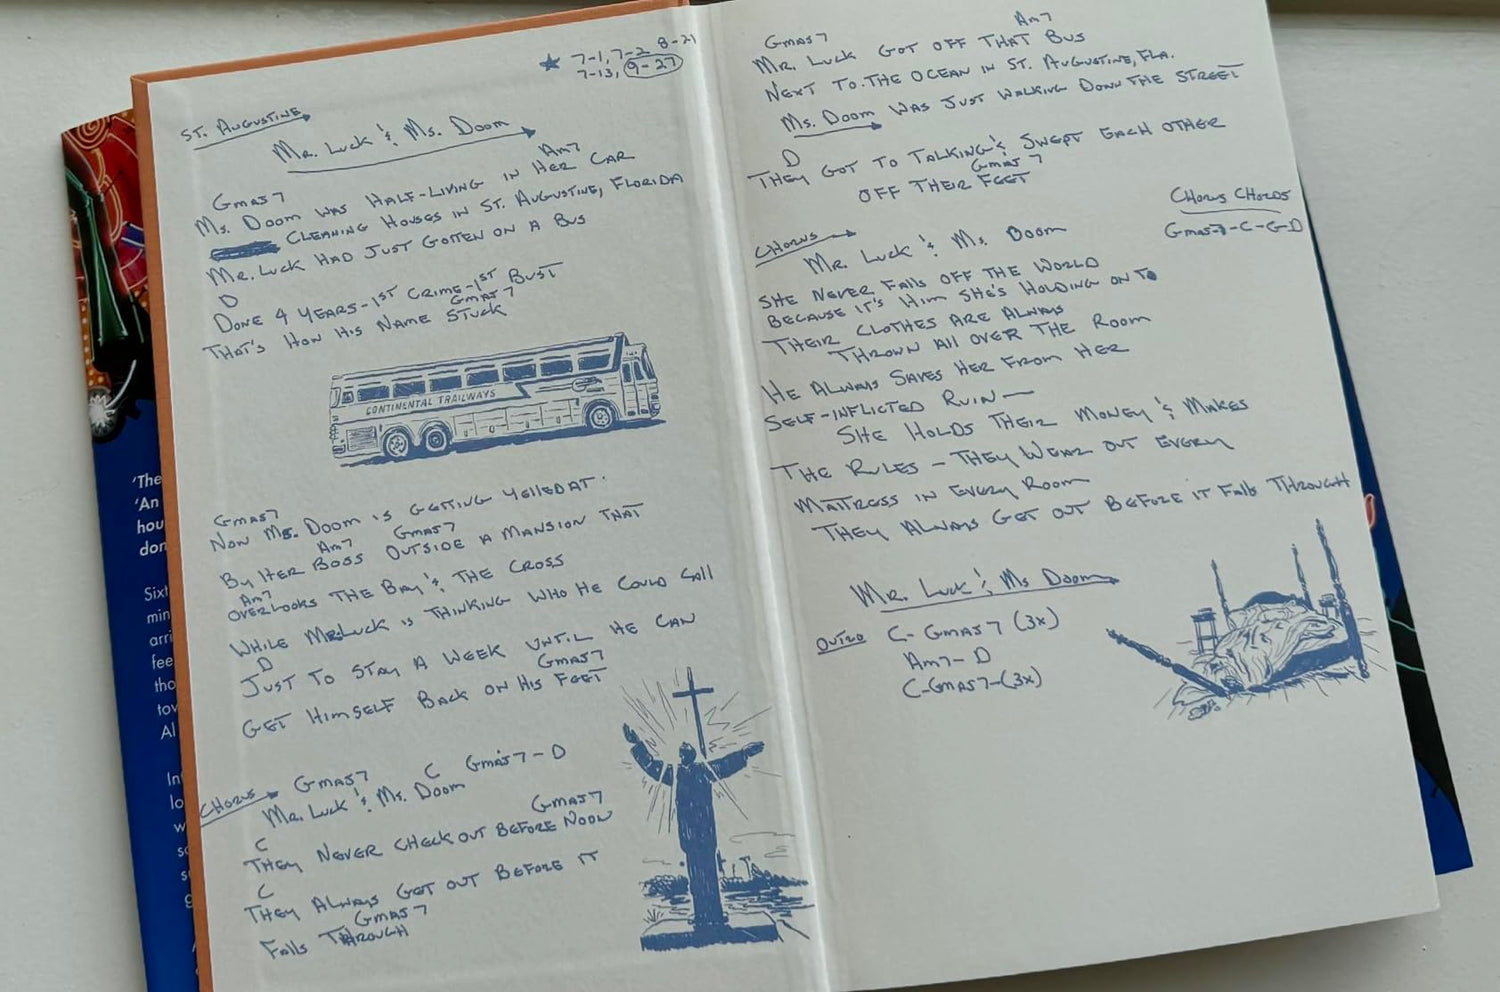 ★ 7-1, 7-2 8-21
7-13, 9-27
ST. AUGUSTINE
MR. LUCK & MS. DOOM
Gmaj7 Am7
MS. DOOM WAS HALF-LIVING IN HER CAR
CLEANING HOUSES IN ST. AUGUSTINE, FLORIDA
MR. LUCK HAD JUST GOTTEN ON A BUS
D
DONE 4 YEARS-1ST CRIME-1ST BUST
Gmaj7
THAT'S HOW HIS NAME STUCK
CONTINENTAL TRAILWAYS
Gmaj7
NOW MS. DOOM IS GETTING YELLED AT
Am7 Gmaj7
BY HER BOSS OUTSIDE A MANSION THAT
Am7
OVERLOOKS THE BAY & THE CROSS
WHILE MR. LUCK IS THINKING WHO HE COULD CALL
D
JUST TO STAY A WEEK UNTIL HE CAN
Gmaj7
GET HIMSELF BACK ON HIS FEET
CHORUS Gmaj7 C Gmaj7-D
MR. LUCK & MS. DOOM
C Gmaj7
THEY NEVER CHECK OUT BEFORE NOON
C
THEY ALWAYS GET OUT BEFORE IT
Gmaj7
FALLS THROUGH
Gmaj7 Am7
MR. LUCK GOT OFF THAT BUS
NEXT TO THE OCEAN IN ST. AUGUSTINE, FLA.
MS. DOOM WAS JUST WALKING DOWN THE STREET
D
THEY GOT TO TALKING & SWEPT EACH OTHER
Gmaj7
OFF THEIR FEET
CHORUS CHORDS
Gmaj7-C-G-D
CHORUS
MR. LUCK & MS. DOOM
SHE NEVER FALLS OFF THE WORLD
BECAUSE IT'S HIM SHE'S HOLDING ON TO
THEIR CLOTHES ARE ALWAYS
THROWN ALL OVER THE ROOM
HE ALWAYS SAVES HER FROM HER
SELF-INFLICTED RUIN—
SHE HOLDS THEIR MONEY & MAKES
THE RULES - THEY WEAR OUT EVERY
MATTRESS IN EVERY ROOM
THEY ALWAYS GET OUT BEFORE IT FALLS THROUGH
MR. LUCK & MS DOOM
OUTRO C-Gmaj7 (3x)
Am7-D
C-Gmaj7-(3x)
'The
'An
hou
don
Sixt
min
arri
fee
tho
tov
Al
In
lo
w